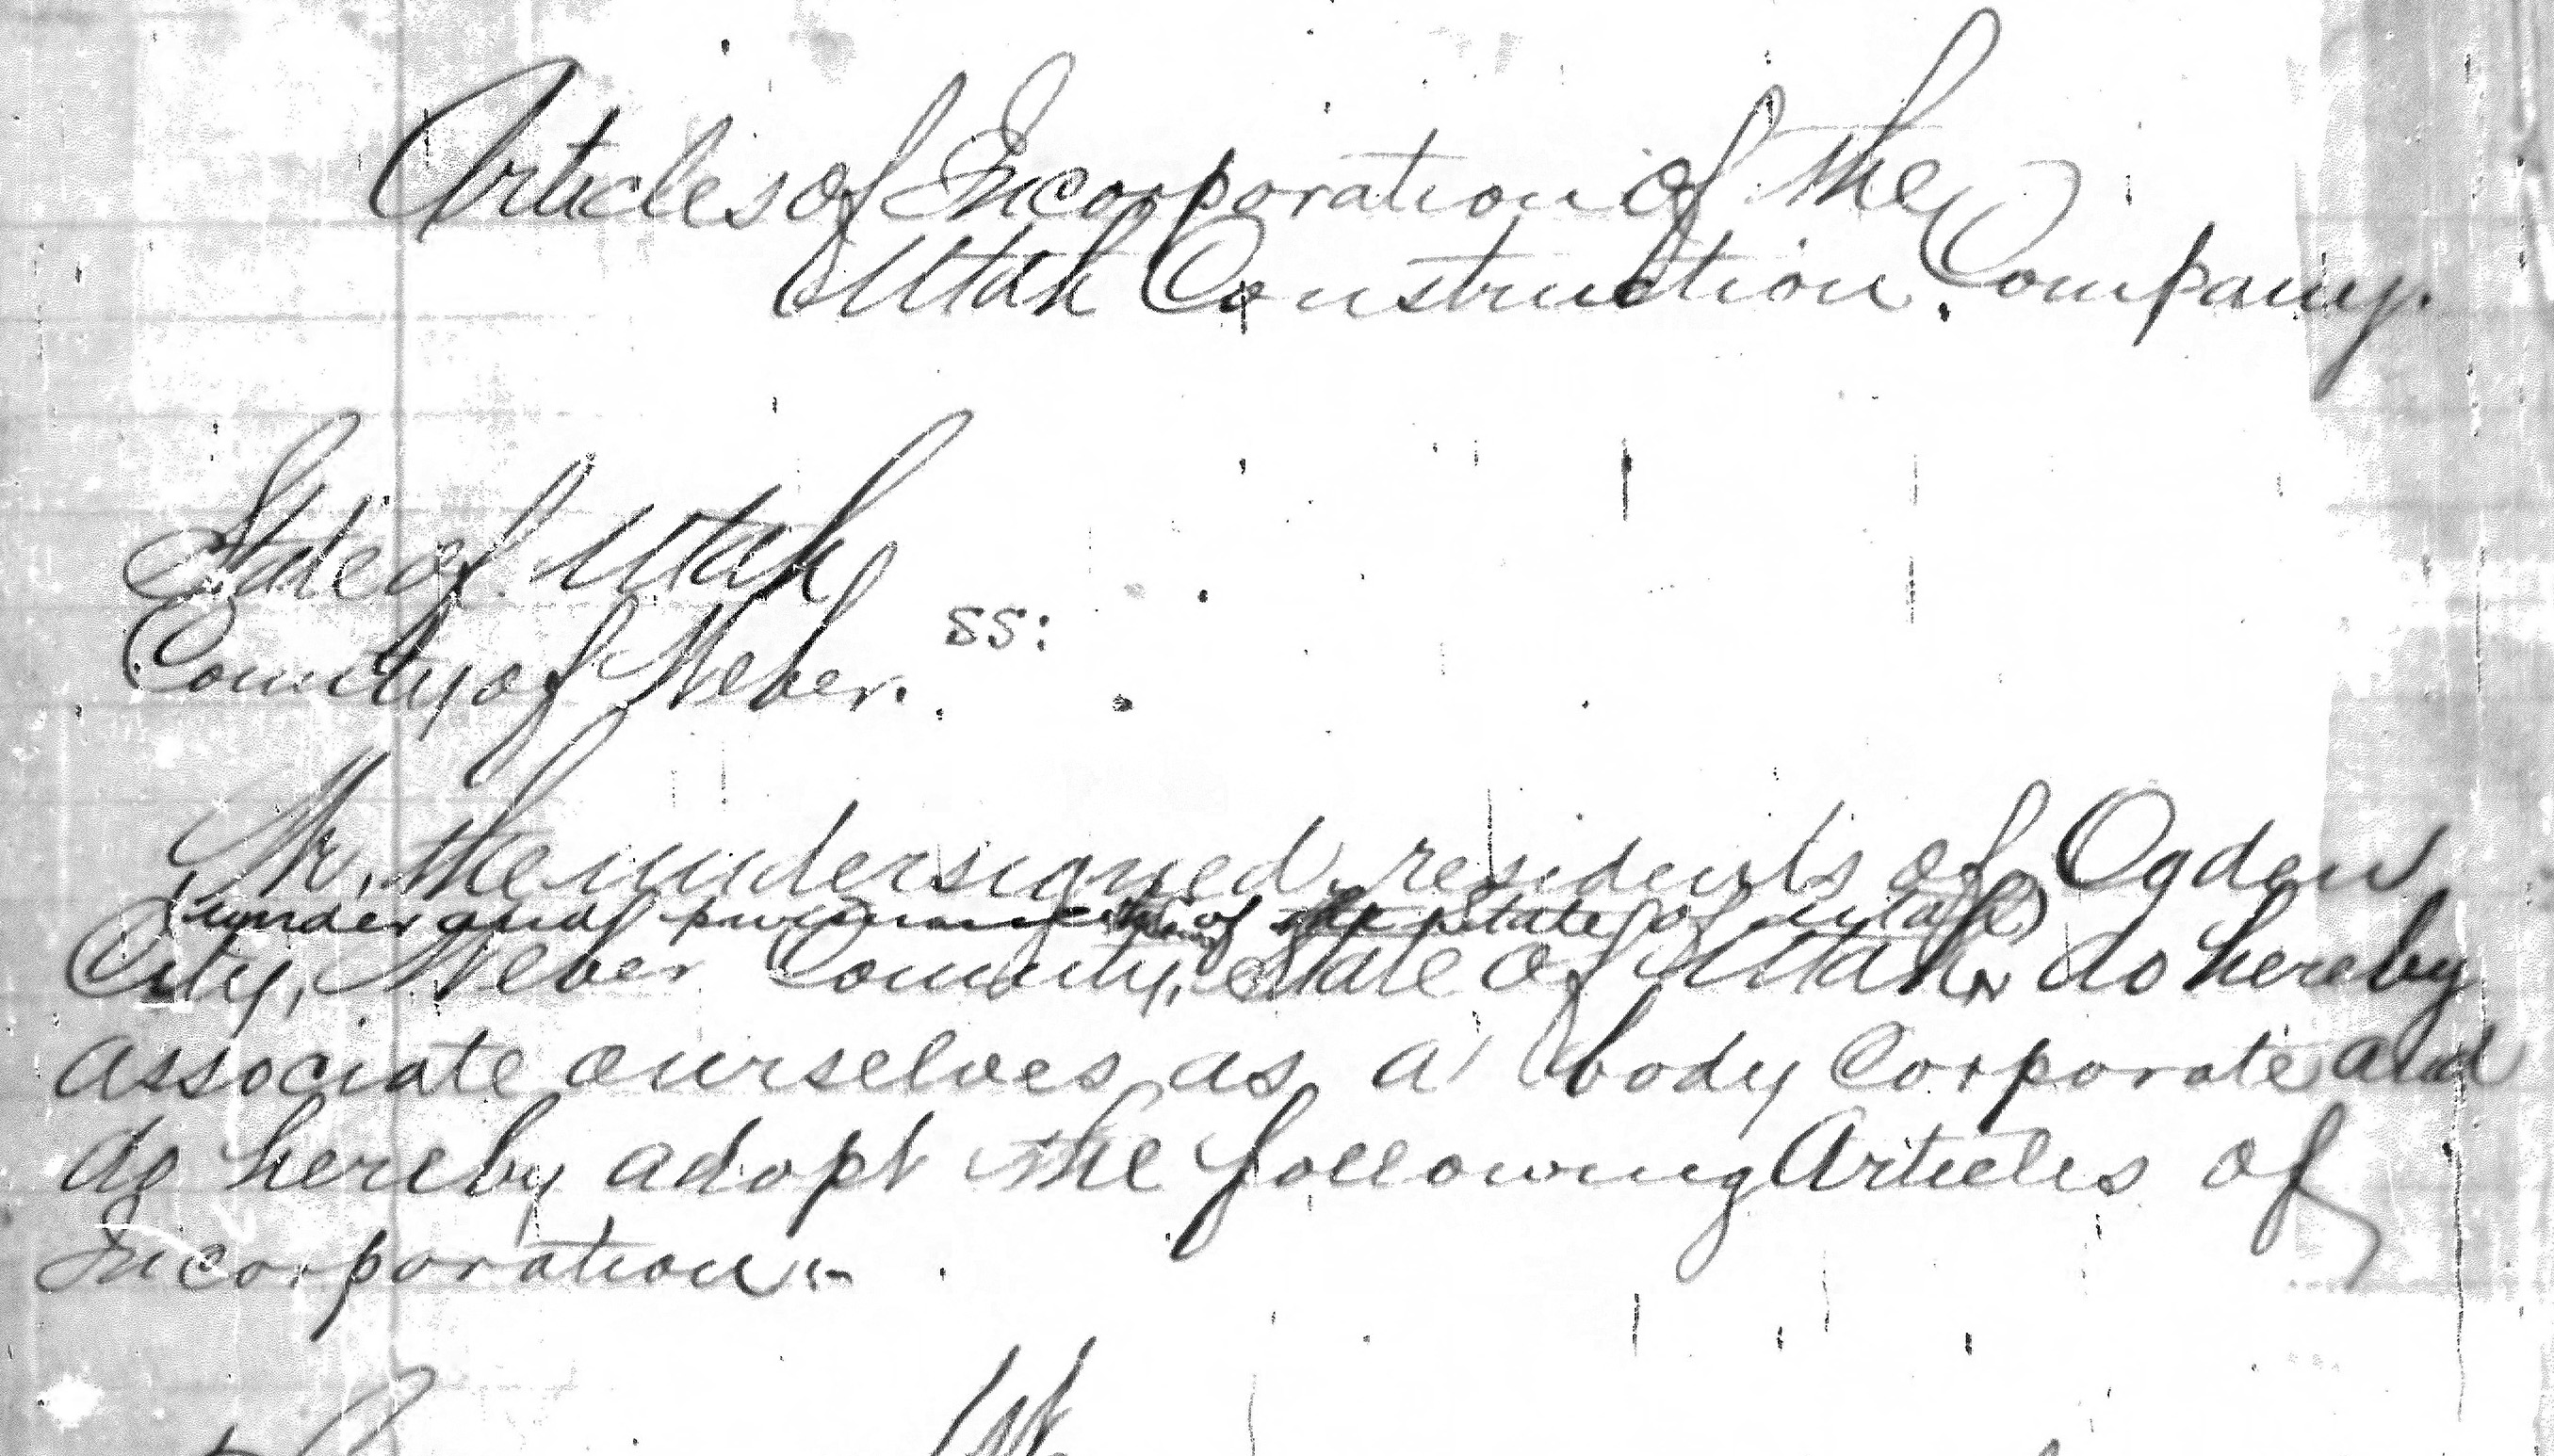 Articles of Incorporation of the
Utah Construction Company.
State of Utah
County of Weber. ss:
We, the undersigned, residents of Ogden
(under and of the State of Utah)
City, Weber County, State of Utah, do hereby
associate ourselves as a body Corporate and
do hereby adopt the following Articles of
Incorporation:-